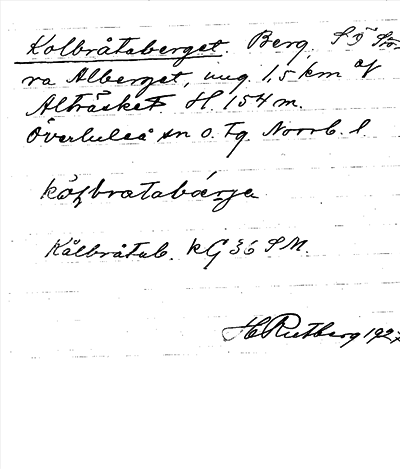 Kolbråtaberget. Berg. SO Sto-
ra Alberget, ung 1,5 km af
Alträsket. H. 154 m.
Överluleå sn o. Tg. Norrb. l.
kålbråtabärje
Kålbråtab. KG 36 SM.
H Rutberg 1927